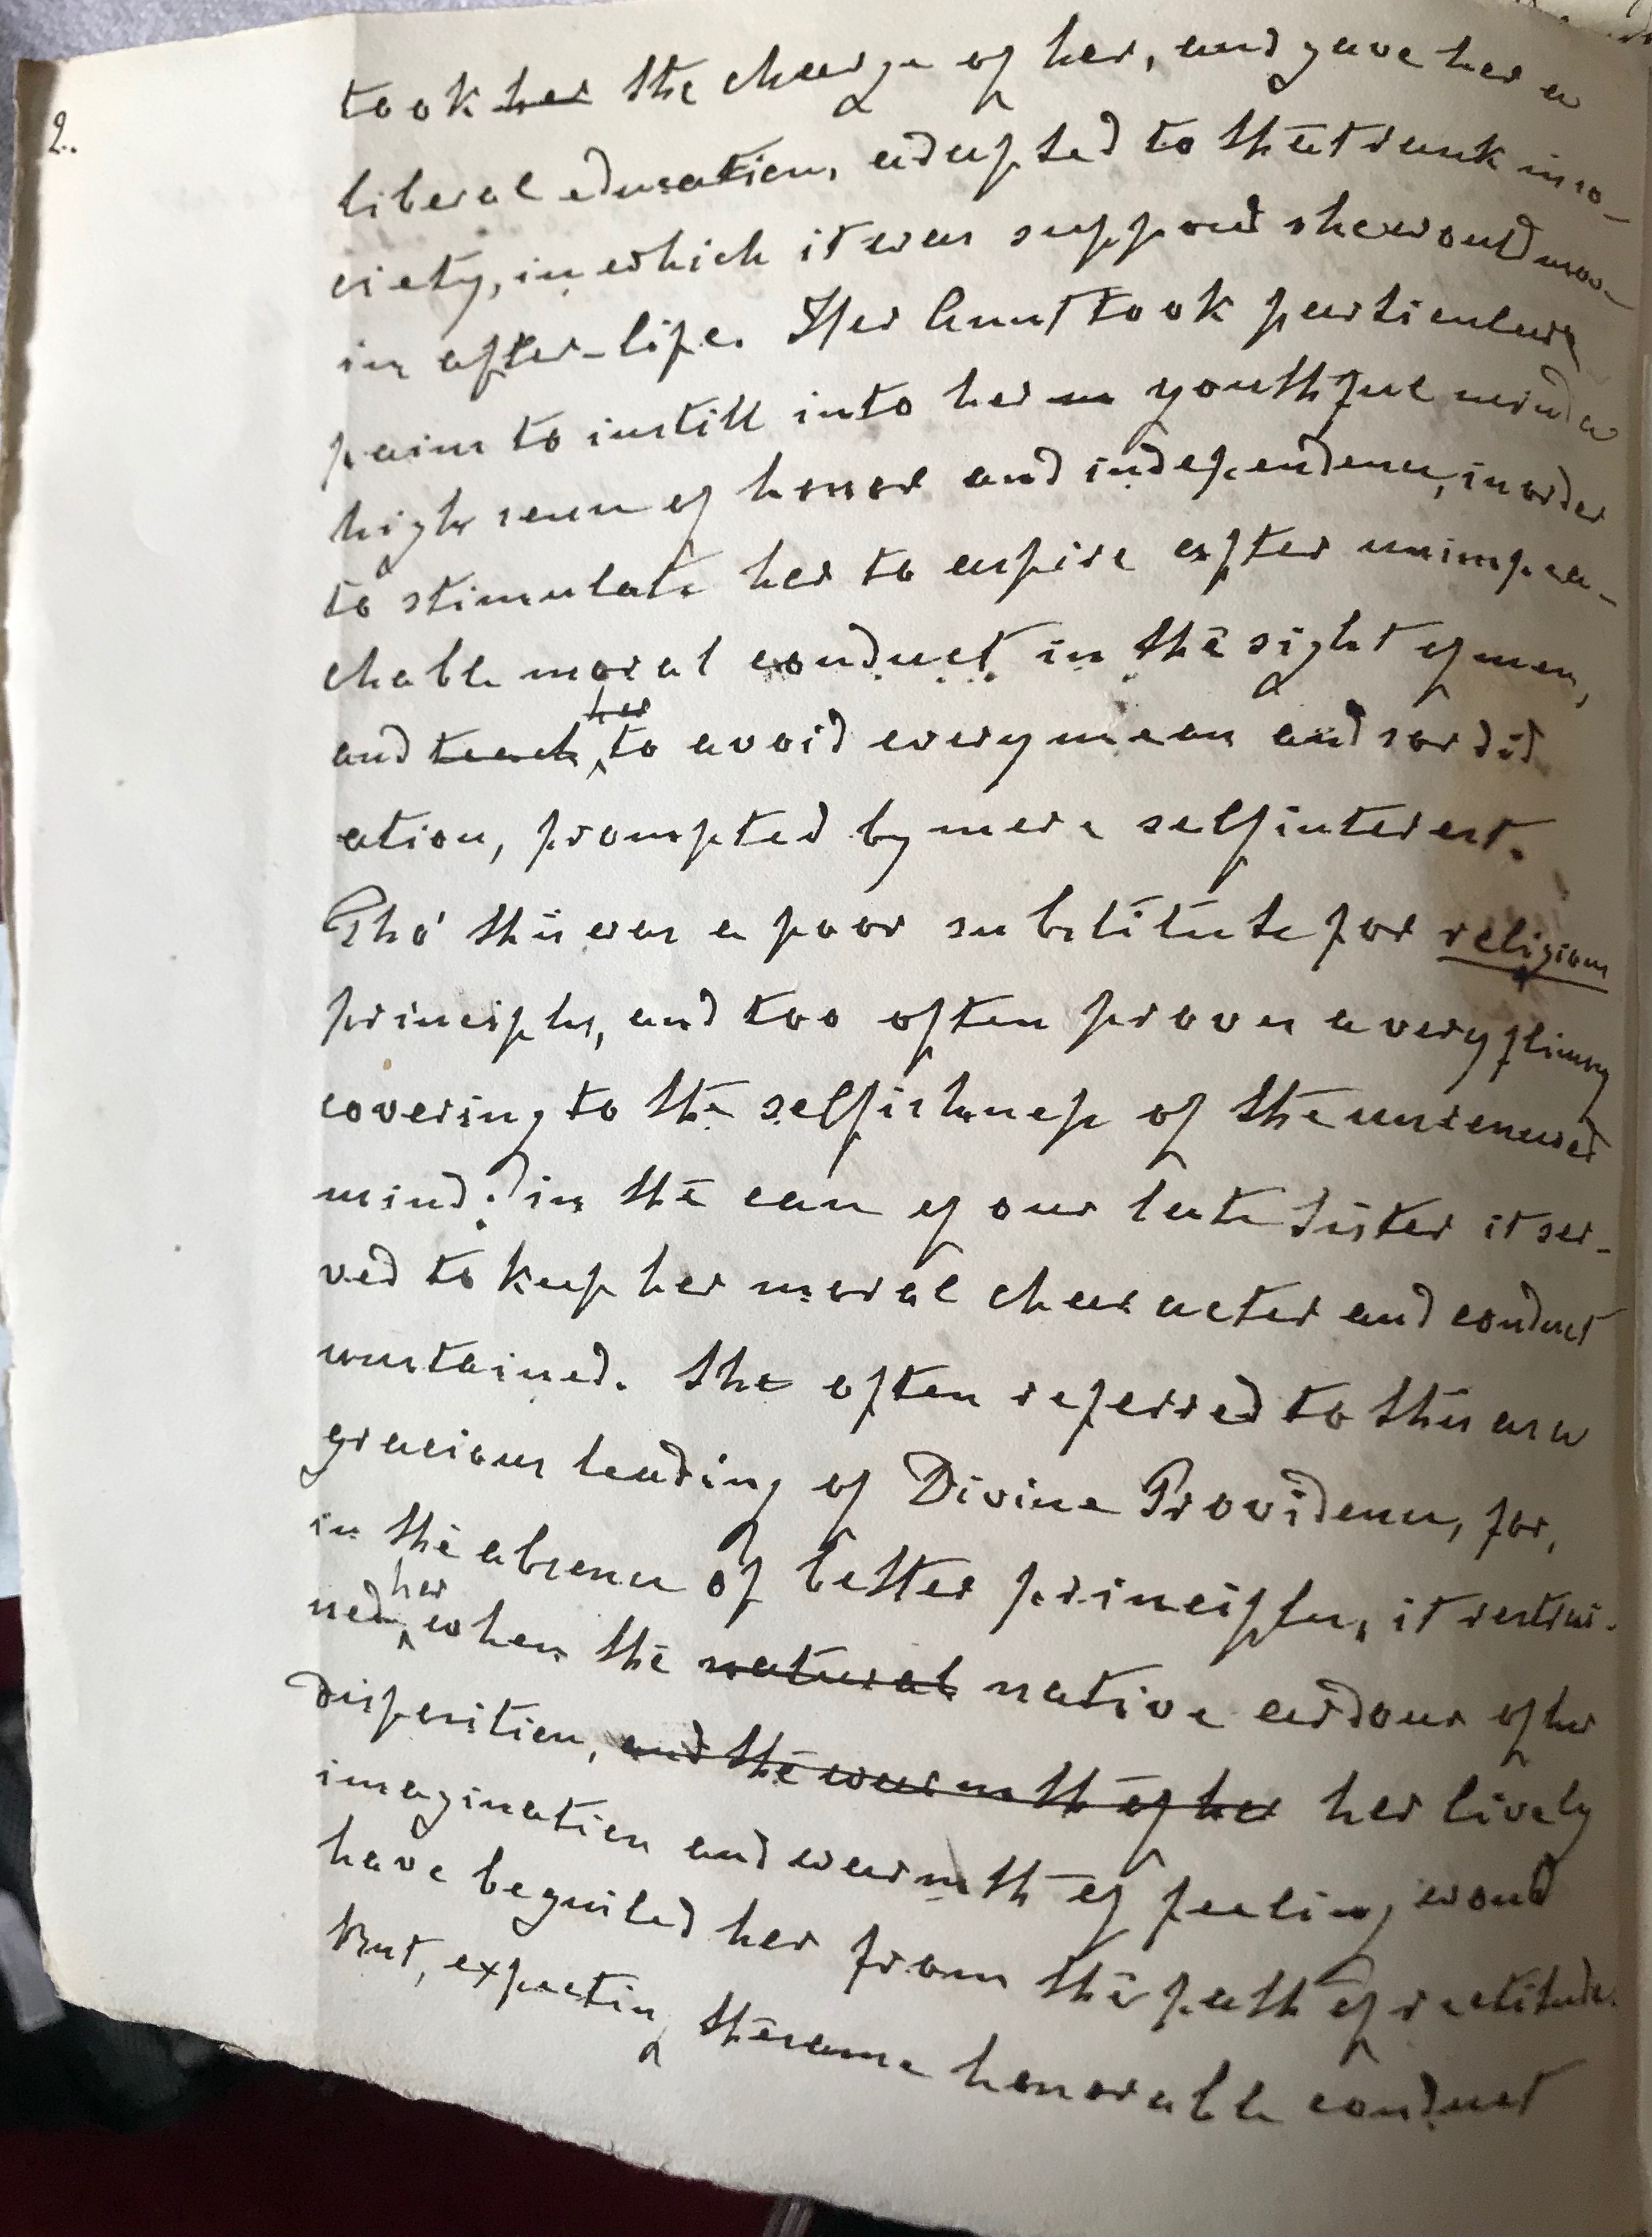 2.
took her the charge of her, and gave her a
liberal education, adapted to that rank in so-
ciety, in which it was supposed she would move
in after-life. Her Aunt took particular
pains to instill into her m youthful mind a
high sense of honor and independence, in order
to stimulate her to aspire after unimpea-
chable moral conduct in the sight of men,
her
and teach to avoid every mean and sordid
action, prompted by mere selfinterest.
Tho' this was a poor substitute for religious
principles, and too often proves a very flimsy
covering to the selfishness of the unrenewed
mind; in the case of our late Sister it ser-
ved to keep her moral character and conduct
unstained. She often referred to this as a
gracious leading of Divine Providence, for,
in the absence of better principles, it restrai-
her
ned when the natural native ardour of her
disposition, and the warmth of her her lively
imagination and warmth of feeling would
have beguiled her from the path of rectitude.
But, expecting the same honorable conduct